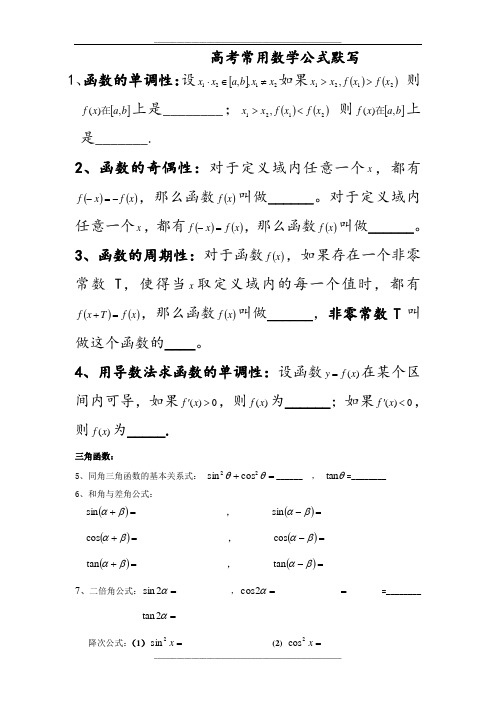 高考常用数学公式默写
1、函数的单调性：设 x₁·x₂∈[a,b], x₁≠x₂ 如果 x₁>x₂, f(x₁)>f(x₂) 则
f(x)在[a,b]上是_________；x₁>x₂, f(x₁)<f(x₂) 则 f(x)在[a,b]上
是_______.
2、函数的奇偶性：对于定义域内任意一个 x，都有
f(−x)=−f(x)，那么函数 f(x) 叫做______。对于定义域内
任意一个 x，都有 f(−x)=f(x)，那么函数 f(x) 叫做______。
3、函数的周期性：对于函数 f(x)，如果存在一个非零
常数 T，使得当 x 取定义域内的每一个值时，都有
f(x+T)=f(x)，那么函数 f(x) 叫做______，非零常数 T 叫
做这个函数的____。
4、用导数法求函数的单调性：设函数 y=f(x) 在某个区
间内可导，如果 f′(x)>0，则 f(x) 为______；如果 f′(x)<0，
则 f(x) 为_____.
三角函数：
5、同角三角函数的基本关系式： sin²θ+cos²θ=______ ， tanθ=________
6、和角与差角公式：
sin(α+β)= ， sin(α−β)=
cos(α+β)= ， cos(α−β)=
tan(α+β)= ， tan(α−β)=
7、二倍角公式：sin2α= ，cos2α= = =________
tan2α=
降次公式：（1）sin²x= (2) cos²x=